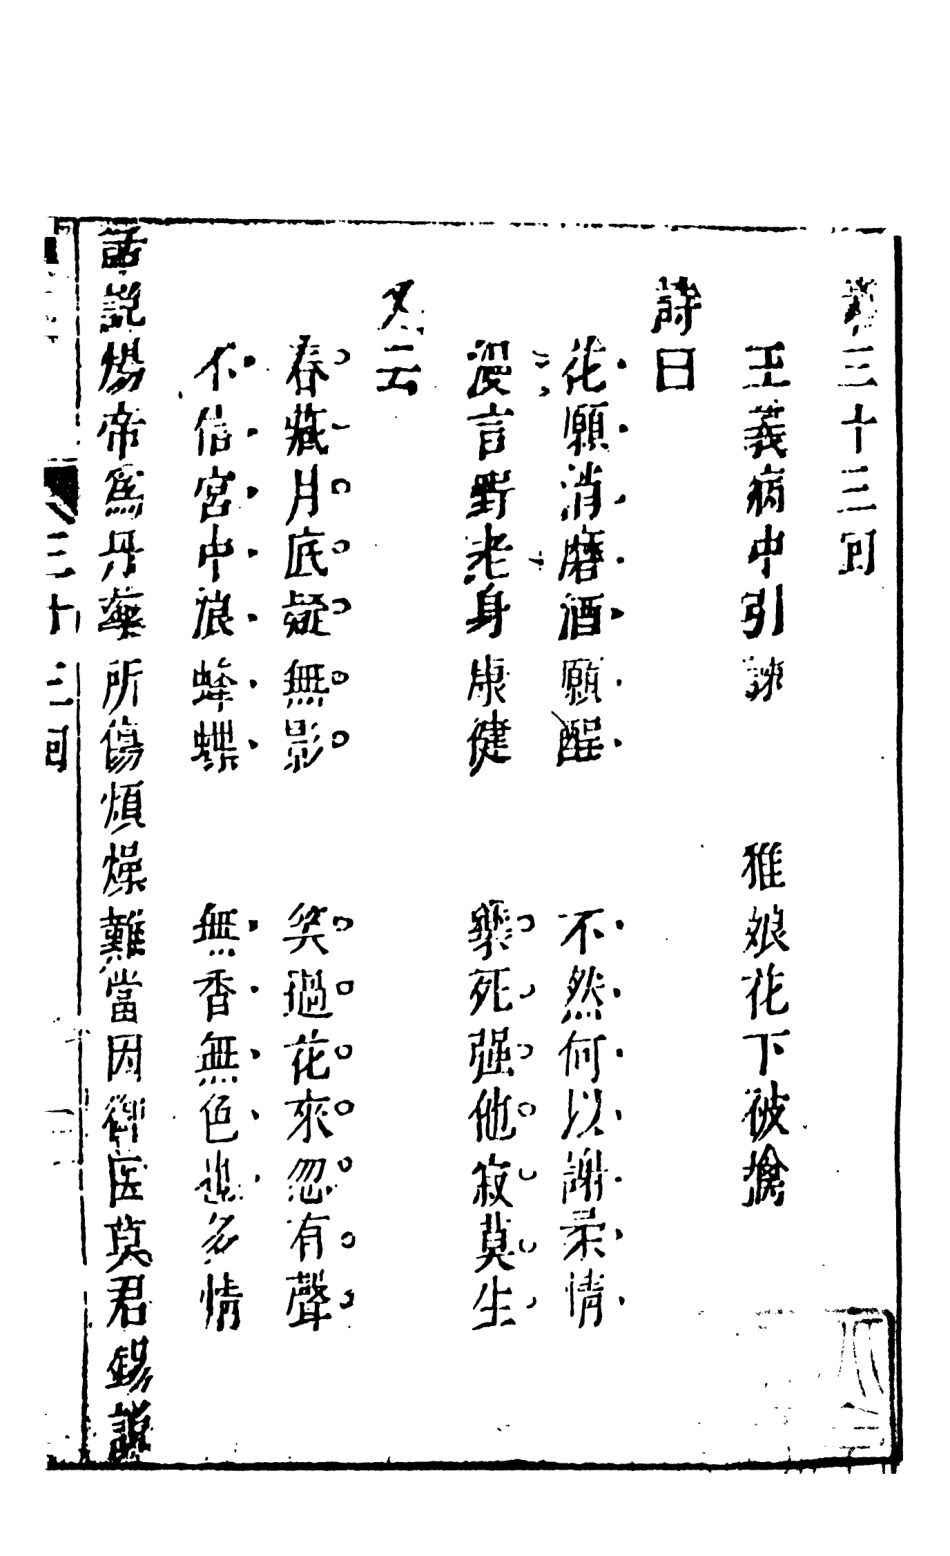 第三十三回
王義病中引諫　雅娘花下被擒
詩曰
花願消磨酒願醒　不然何以謝柔情
漫言野老身康健　樂死强他寂莫生
又云
春藏月底疑無影　笑過花來忽有聲
不信宮中浪蜂蝶　無香無色也多情
話說煬帝爲丹藥所傷煩燥難當因御医莫君錫說
三十三回